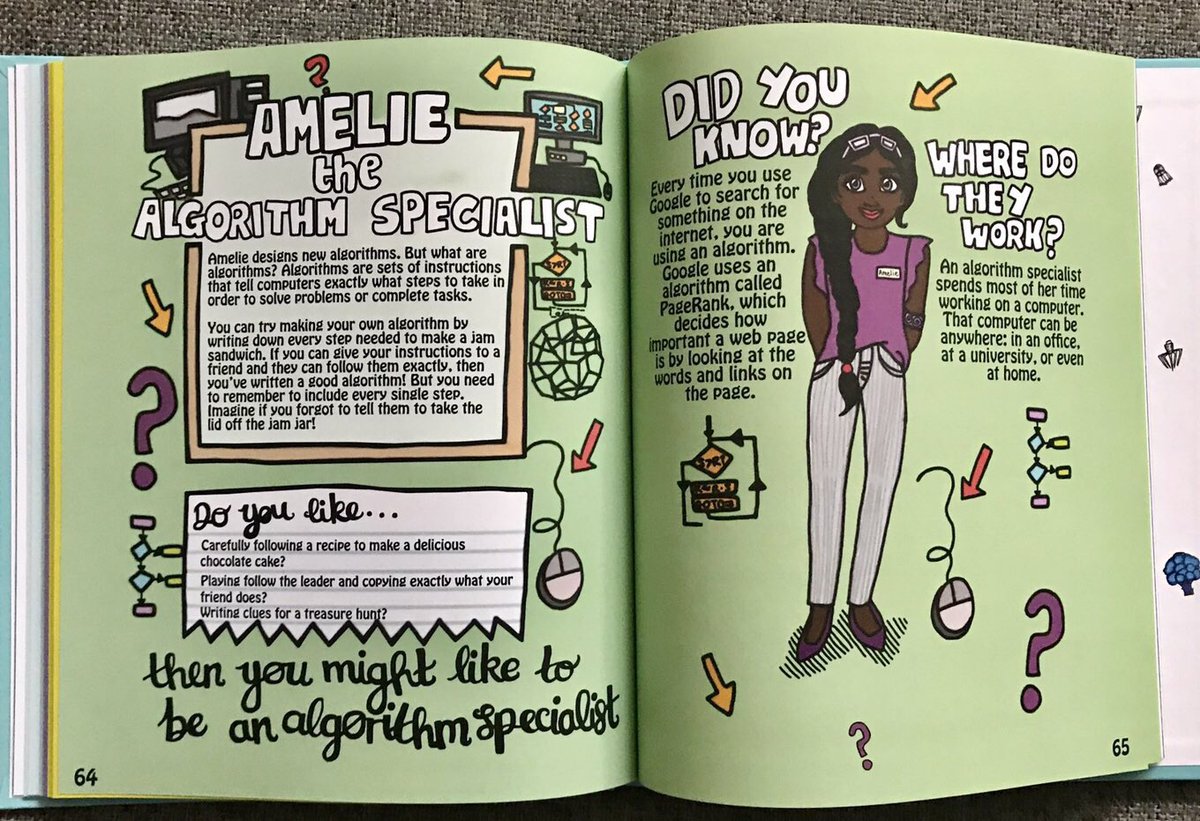 AMELIE
the
ALGORITHM SPECIALIST
Amelie designs new algorithms. But what are
algorithms? Algorithms are sets of instructions
that tell computers exactly what steps to take in
order to solve problems or complete tasks.
You can try making your own algorithm by
writing down every step needed to make a jam
sandwich. If you can give your instructions to a
friend and they can follow them exactly, then
you've written a good algorithm! But you need
to remember to include every single step.
Imagine if you forgot to tell them to take the
lid off the jam jar!
Do you like...
Carefully following a recipe to make a delicious
chocolate cake?
Playing follow the leader and copying exactly what your
friend does?
Writing clues for a treasure hunt?
then you might like to
be an algorithm specialist
64
DID YOU
KNOW?
Every time you use
Google to search for
something on the
internet, you are
using an algorithm.
Google uses an
algorithm called
PageRank, which
decides how
important a web page
is by looking at the
words and links on
the page.
Amelie
WHERE DO
THEY
WORK?
An algorithm specialist
spends most of her time
working on a computer.
That computer can be
anywhere: in an office,
at a university, or even
at home.
65